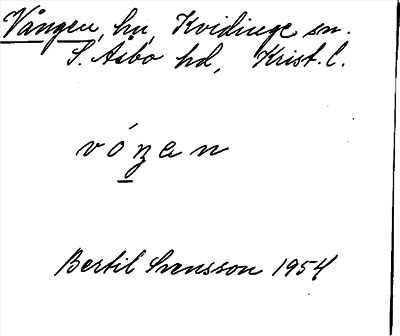 Vången, hu, Kvidinge sn.
S. Åsbo hd, Krist. l.
vóŋen
Bertil Svensson 1954